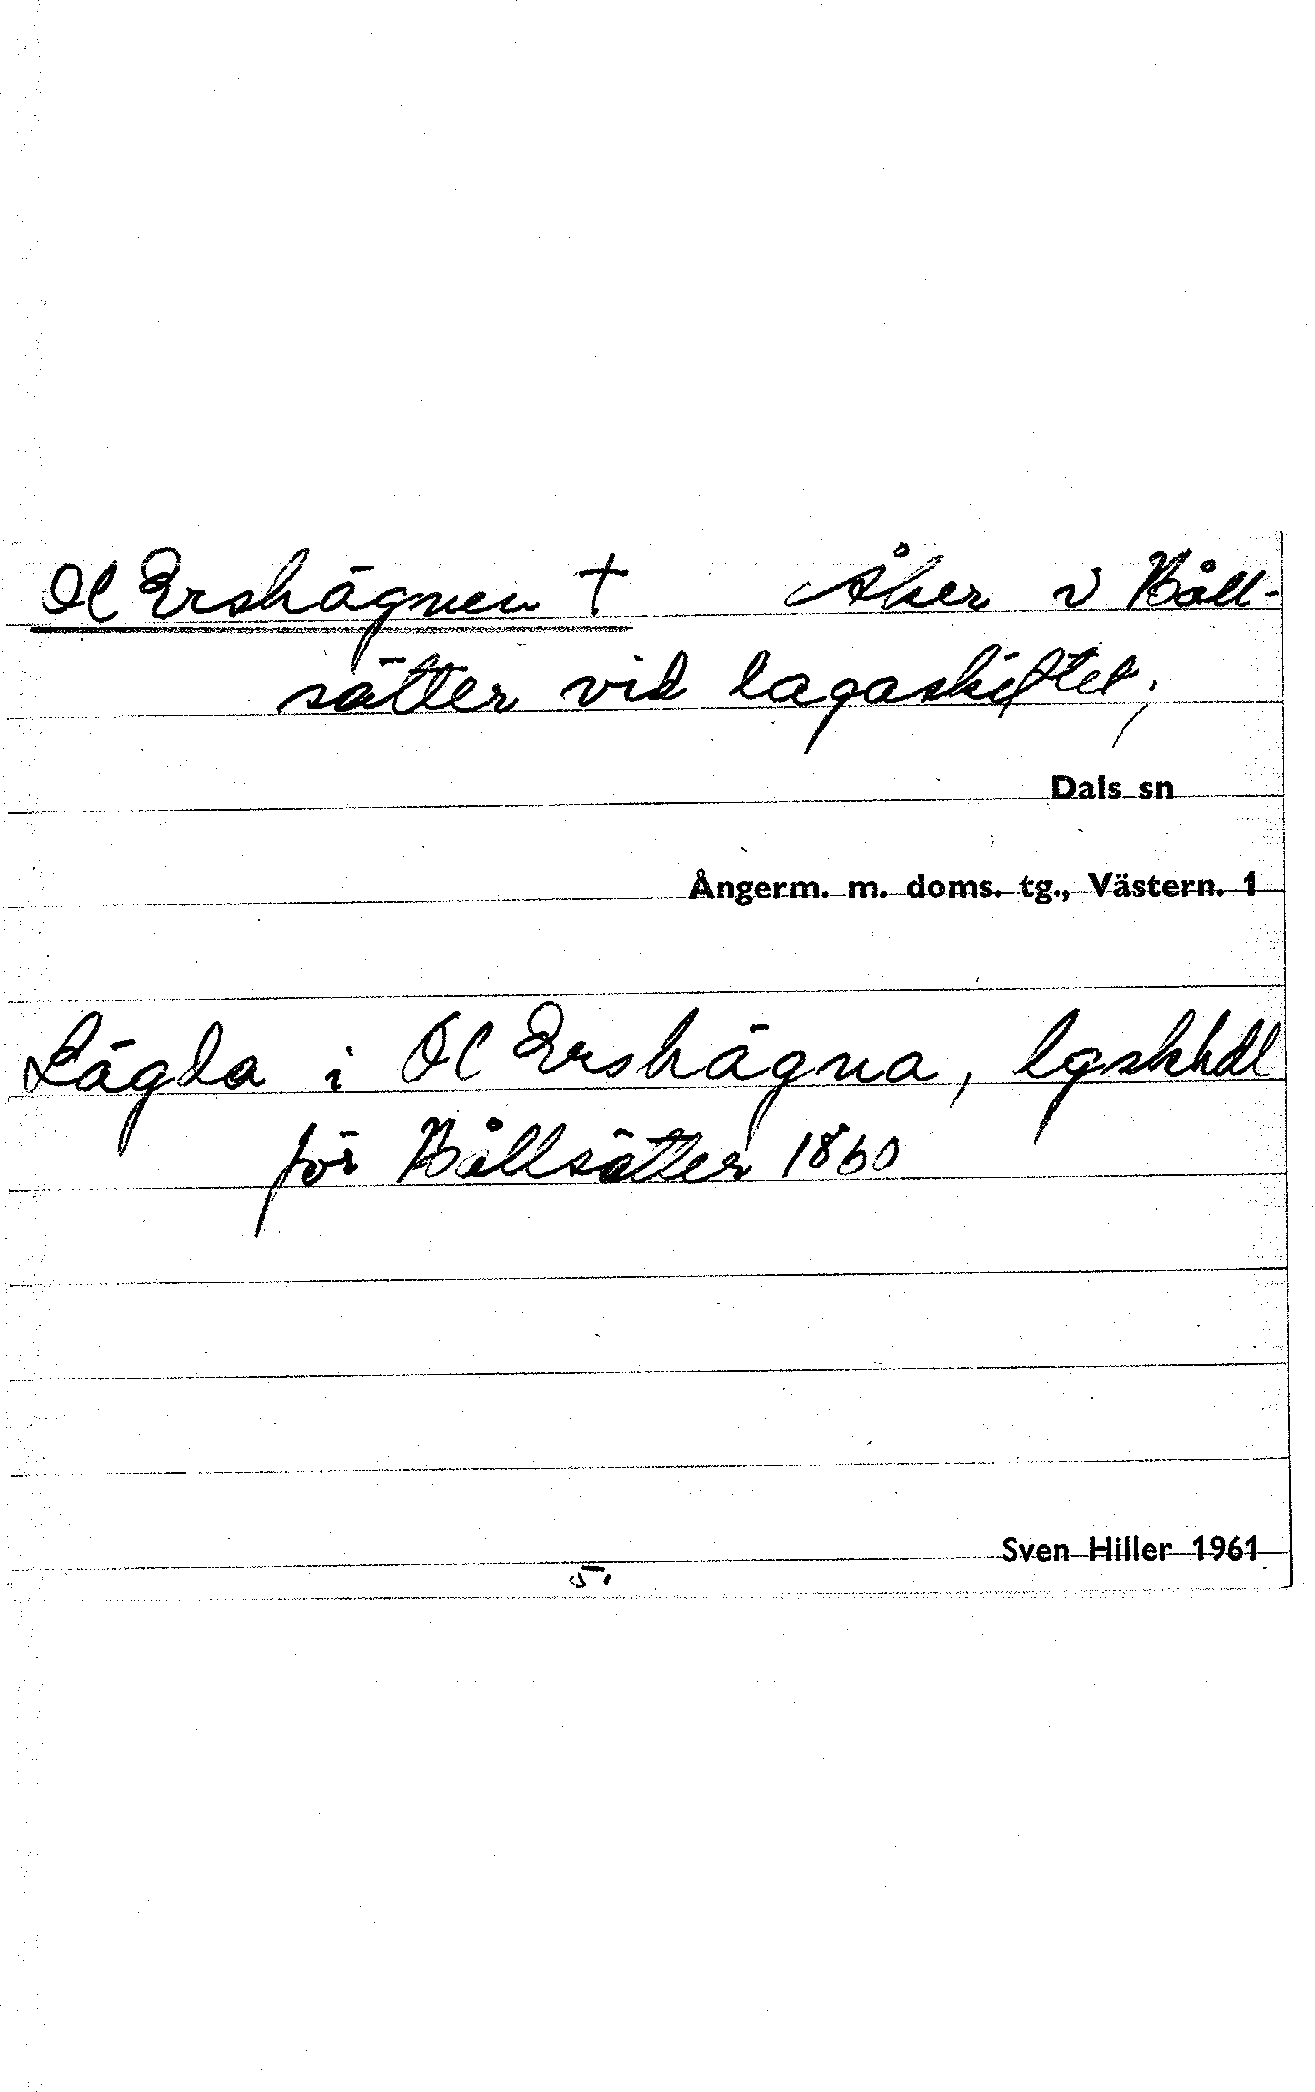 Ol Ershägnen † Åker i Båll-
sätter vid lagaskiftet;
Dals sn
Ångerm. m. doms. tg., Västern. 1
Lägda i Ol Ershägna, lgskhdl
för Bållsätter 1860
Sven Hiller 1961
5.